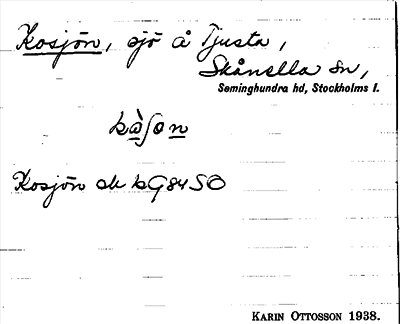 Kosjön, sjö å Tjusta,
Skånella sn,
Seminghundra hd, Stockholms l.
kòʃon
Kosjön ek kG84SO
KARIN OTTOSSON 1938.